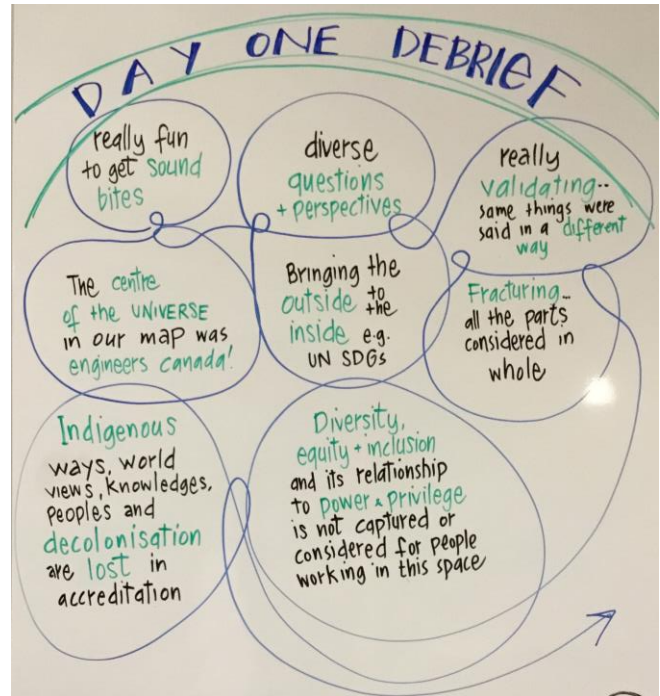 DAY ONE DEBRIEF
really fun
to get sound
bites
diverse
questions
+ perspectives
really
validating..
same things were
said in a different
way
The centre
of the UNIVERSE
in our map was
engineers canada!
Bringing the
outside to
the
inside e.g.
UN SDGs
Fracturing..
all the parts
considered in
whole
Indigenous
ways, world
views, knowledges,
peoples and
decolonisation
are lost in
accreditation
Diversity,
equity + inclusion
and its relationship
to power & privilege
is not captured or
considered for people
working in this space